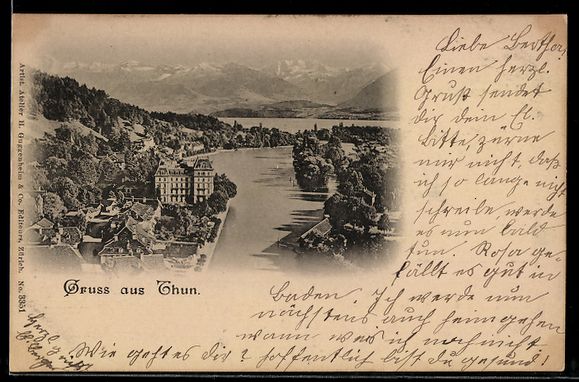 Liebe Bertha,
Einen herzl.
Gruß sendet
dir dein El.
Bitte, zürne
mir nicht, daß
ich so lange nicht
schreibe, werde
es nun bald
tun. Rosa ge-
fällt es gut in
Baden. Ich werde nun
nächstens auch heimgehen
wann, weis ich noch nicht
Wie geht es dir? hoffentlich bist du gesund!
Herzl. Grüße
Gruss aus Thun.
Artist. Atelier H. Guggenheim & Co. Editeurs, Zürich. No. 3351